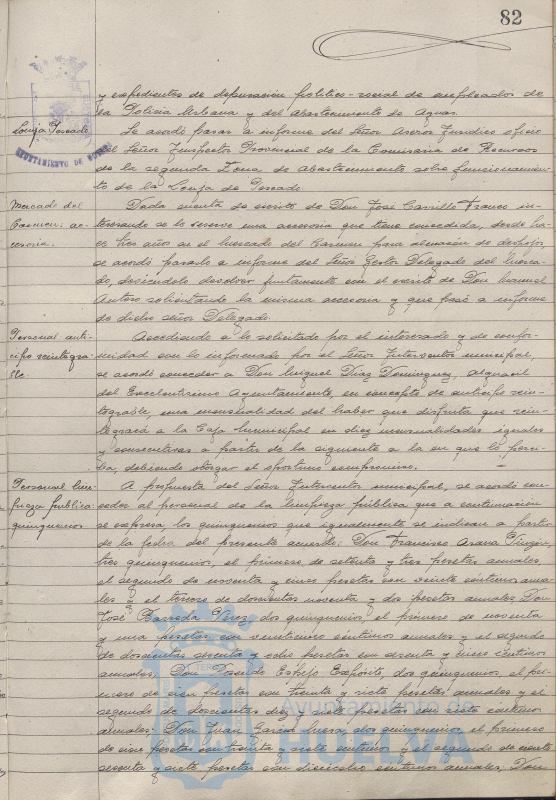 82
y expedientes de depuración político-social de empleados de
la Policía Urbana y del Abastecimiento de Aguas.
Lonja Pescado
Se acordó pasar a informe del Señor Asesor Jurídico oficio
del Señor Inspector Provincial de la Comisaría de Recursos
de la segunda Zona de Abastecimiento sobre funcionamien-
to de la Lonja de Pescado.
AYUNTAMIENTO DE HUELVA
Mercado del
Carmen: ac-
cesoria.
Dada cuenta de escrito de Don José Carrillo Franco in-
teresando se le reserve una accesoria que tiene concedida, desde ha-
ce tres años en el Mercado del Karmen para almacén de despojos,
se acordó pasarlo a informe del Señor Gestor Delegado del Merca-
do, debiéndolo devolver juntamente con el escrito de Don Manuel
solicitando la misma accesoria y que pasó a informe
de dicho señor Delegado.
Personal anti-
cipo reintegra-
ble.
Accediendo a lo solicitado por el interesado y de confor-
midad con lo informado por el Señor Interventor municipal,
se acordó conceder a Don Miguel Díaz Domínguez, Alguacil
del Excelentísimo Ayuntamiento, en concepto de anticipo rein-
tegrable, una mensualidad del haber que disfruta que rein-
tegrará a la Caja Municipal en diez mensualidades iguales
y consecutivas a partir de la siguiente a la en que lo perci-
ba, debiendo otorgar el oportuno compromiso.
Personal lim-
pieza pública
quinquenios.
A propuesta del Señor Interventor municipal, se acordó con-
ceder al personal de la limpieza pública que a continuación
se expresa, los quinquenios que igualmente se indican a partir
de la fecha del presente acuerdo: Don Francisco Arana
tres quinquenios, el primero de setenta y tres pesetas anuales,
el segundo de noventa y cinco pesetas con veinte céntimos anua-
les y el tercero de doscientas noventa y dos pesetas anuales Don
José Barreda Pérez, dos quinquenios, el primero de noventa
y una pesetas con veinticinco céntimos anuales y el segundo
de doscientas sesenta y ocho pesetas con sesenta y cinco céntimos
anuales; Don Rosendo Espejo Expósito, dos quinquenios, el pri-
mero de cien pesetas con treinta y siete pesetas anuales y el
segundo de doscientos diez y siete pesetas con siete céntimos
anuales.- Don Juan García dos quinquenios, el primero
de cien pesetas con treinta y siete céntimos y el segundo de ciento
sesenta y siete pesetas con dieciocho céntimos anuales, Don
Ayuntamiento de
HUELVA